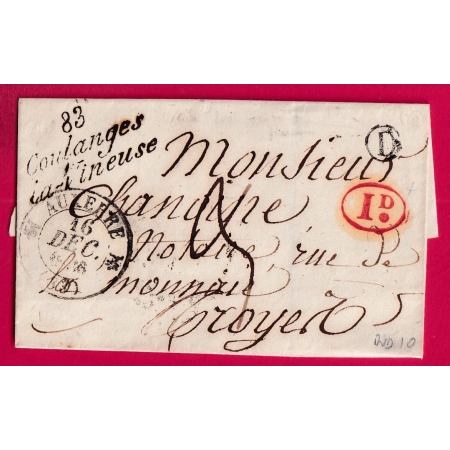 83
Coulanges
la-Vineuse
D
Monsieur
Chanoine
1D
AUXERRE
16
DEC.
Notaire, rue de
la monnaie
Troyes
IND 10